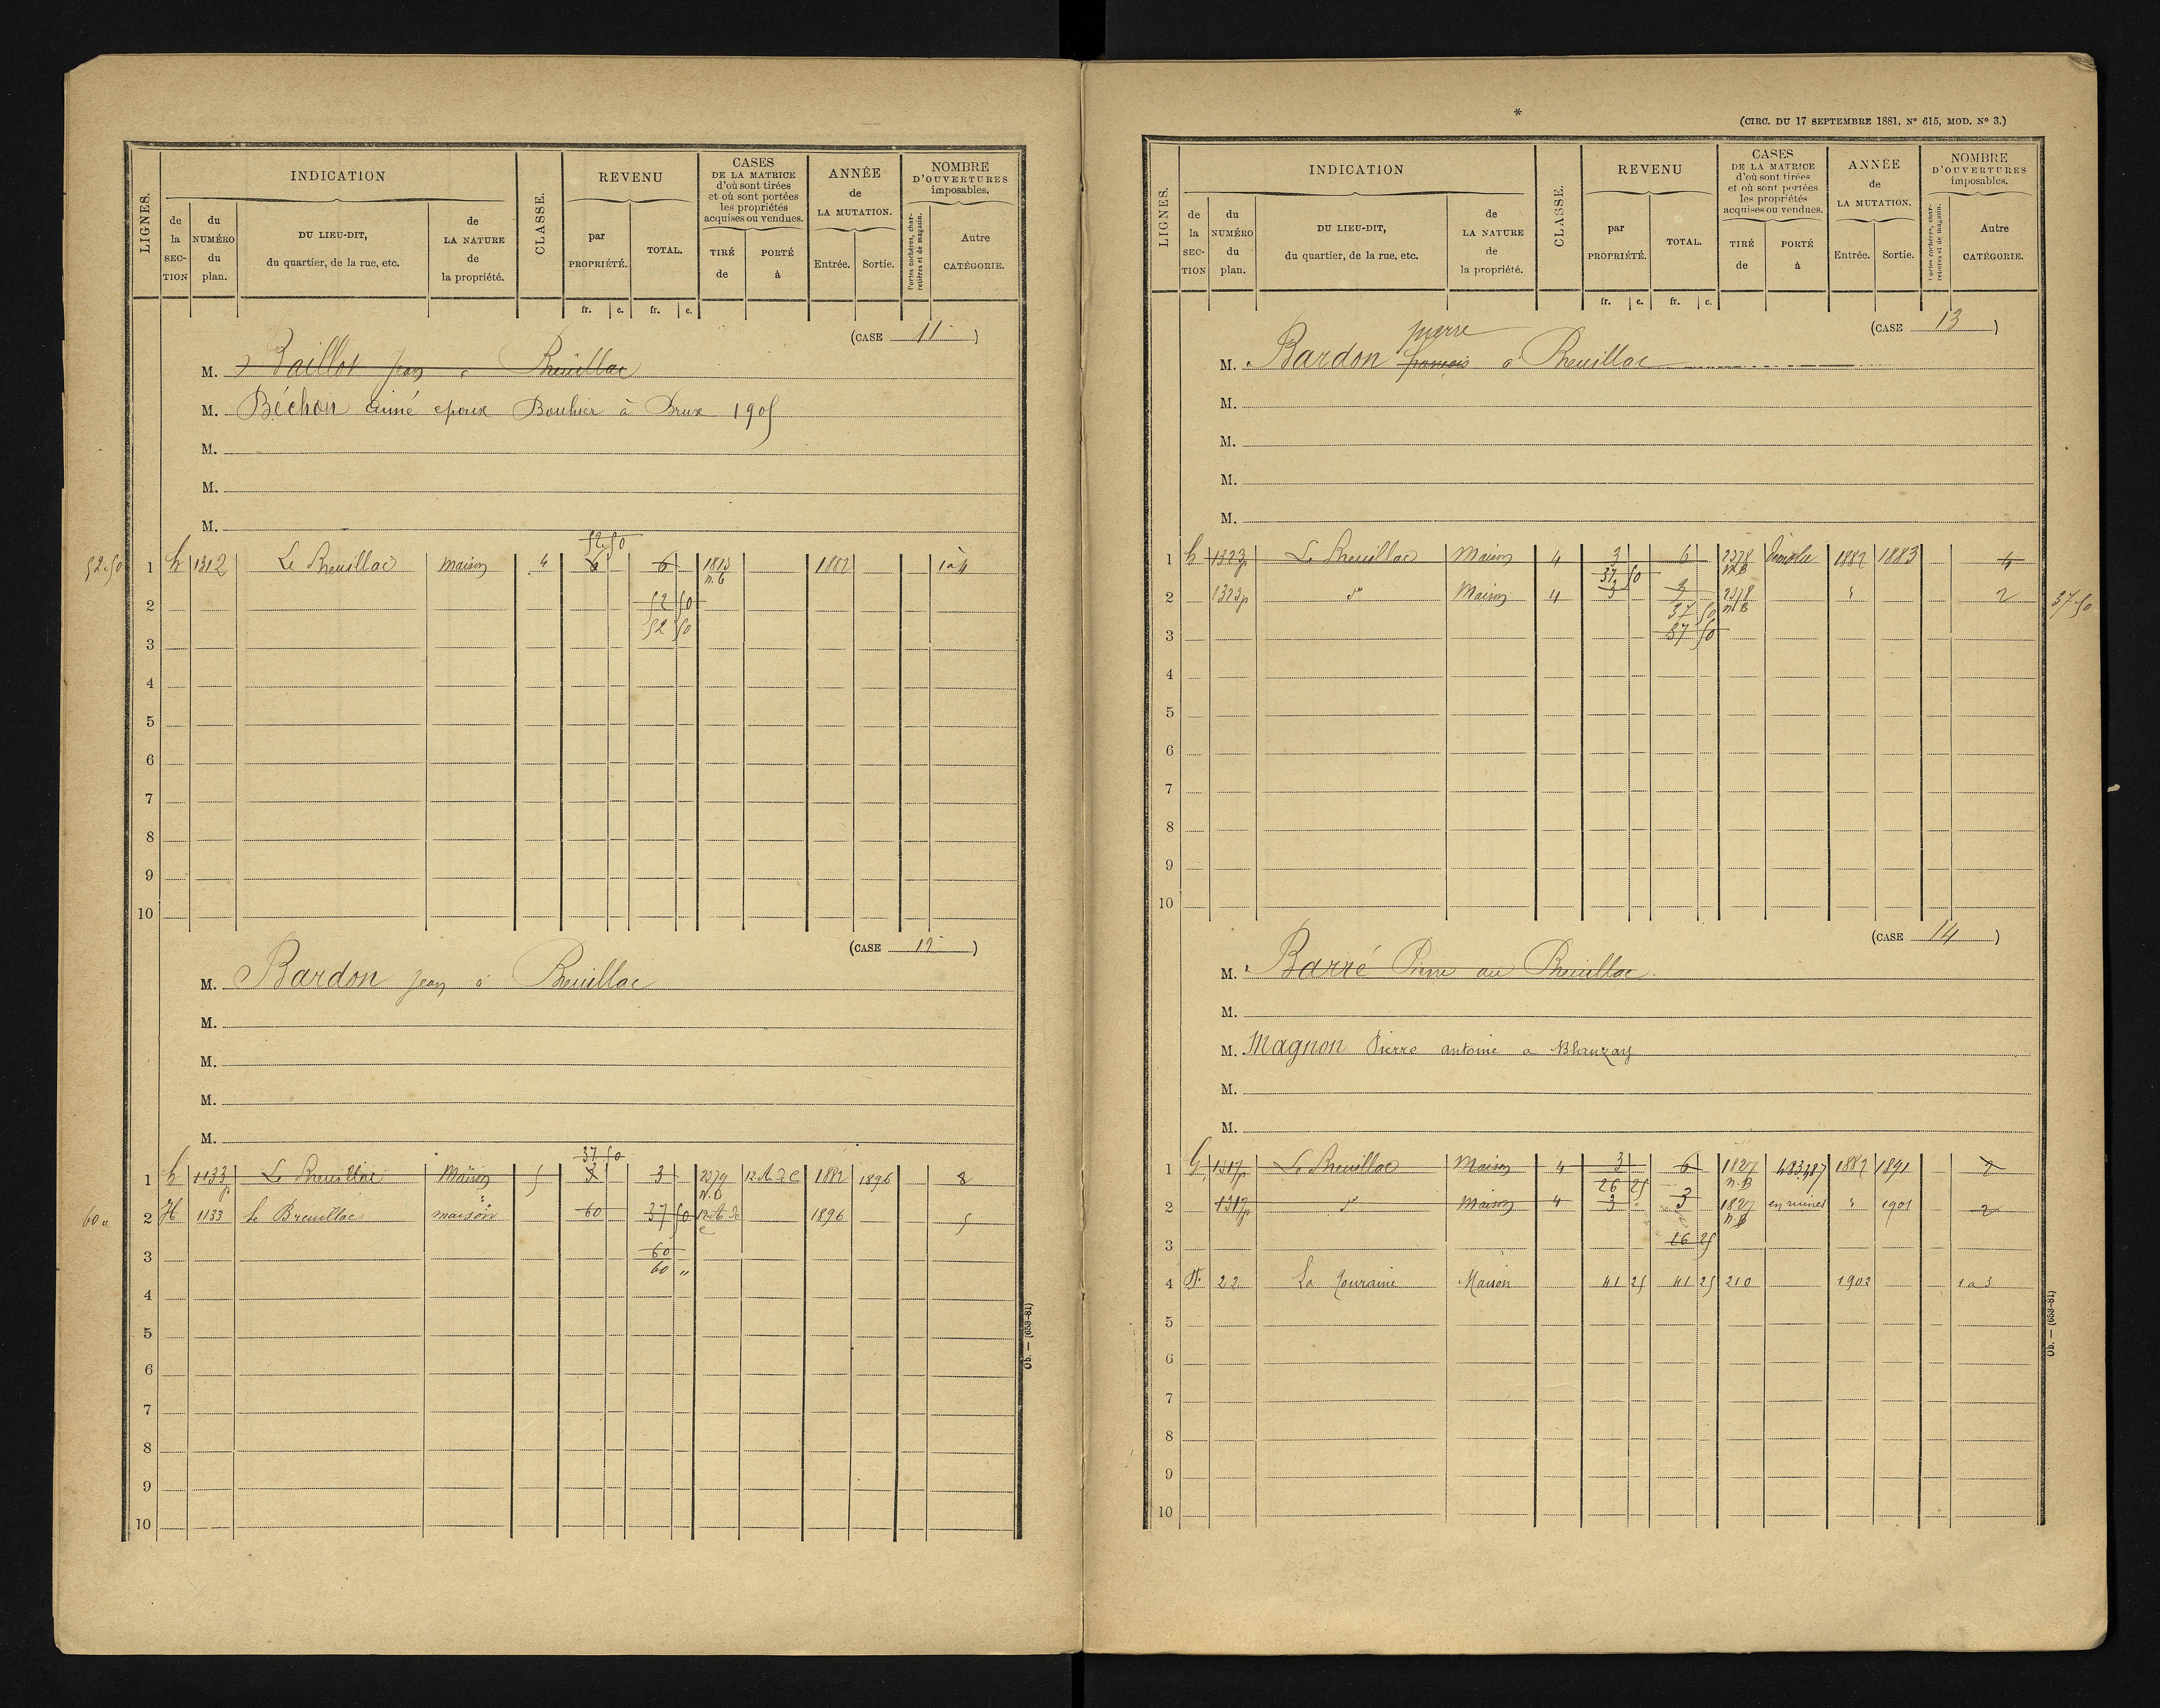 LIGNES.
INDICATION
de la SECTION
du NUMÉRO du plan.
DU LIEU-DIT, du quartier, de la rue, etc.
de LA NATURE de la propriété.
CLASSE.
REVENU
par PROPRIÉTÉ.
TOTAL.
CASES DE LA MATRICE d'où sont tirées et où sont portées les propriétés acquises ou vendues.
TIRÉ de
PORTÉ à
ANNÉE de LA MUTATION.
Entrée. Sortie.
NOMBRE D'OUVERTURES imposables.
Portes cochères, charretières et de magasin.
Autre CATÉGORIE.
fr. c. fr. c.
(CASE 11)
M. Baillot Jean à Breuillac
M. Béchon aimé epoux Bouhier à Brux 1905
M.
M.
M.
52.50
52.50 1 h 1312 Le Breuillac Maison 4 6 6 1813 n.B 1882 1 à 4
2 52 50
52 50
3
4
5
6
7
8
9
10
(CASE 12)
M. Bardon Jean à Breuillac
M.
M.
M.
M.
37.50
1 h 1133p Le Breuillac Maison 5 3 3 2379 N.B 12 1882 1896 2
60 " 2 H 1133 le Breuillac maison 60 37 50 12 1896 5
3 60
60 "
4
5
6
7
8
9
10
Ob. — (653-81)
*
(CIRC. DU 17 SEPTEMBRE 1881, N° 615, MOD. N° 3.)
LIGNES.
INDICATION
de la SECTION
du NUMÉRO du plan.
DU LIEU-DIT, du quartier, de la rue, etc.
de LA NATURE de la propriété.
CLASSE.
REVENU
par PROPRIÉTÉ.
TOTAL.
CASES DE LA MATRICE d'où sont tirées et où sont portées les propriétés acquises ou vendues.
TIRÉ de
PORTÉ à
ANNÉE de LA MUTATION.
Entrée. Sortie.
NOMBRE D'OUVERTURES imposables.
Portes cochères, charretières et de magasin.
Autre CATÉGORIE.
fr. c. fr. c.
(CASE 13)
pierre
M. Bardon françois à Breuillac
M.
M.
M.
M.
1 h 1323p Le Breuillac Maison 4 3 6 2378 N.B Démolie 1882 1883 4
37 50
2 1323p do Maison 4 3 3 2378 N.B " 2 37.50
37 50
3 37 50
4
5
6
7
8
9
10
(CASE 14)
M. Barré Pierre au Breuillac
M.
M. Magnon Pierre antoine a Blanzay
M.
M.
1 G 1317p Le Breuillac Maison 4 3 6 1827 n.B 483.487 1882 1891 2
26 25
2 1317p do Maison 4 3 3 1827 n.B en ruines " 1901 2
3 26 25
4 22 La Touraine Maison 41 25 41 25 210 1902 1 a 3
5
6
7
8
9
10
Ob. — (653-81)